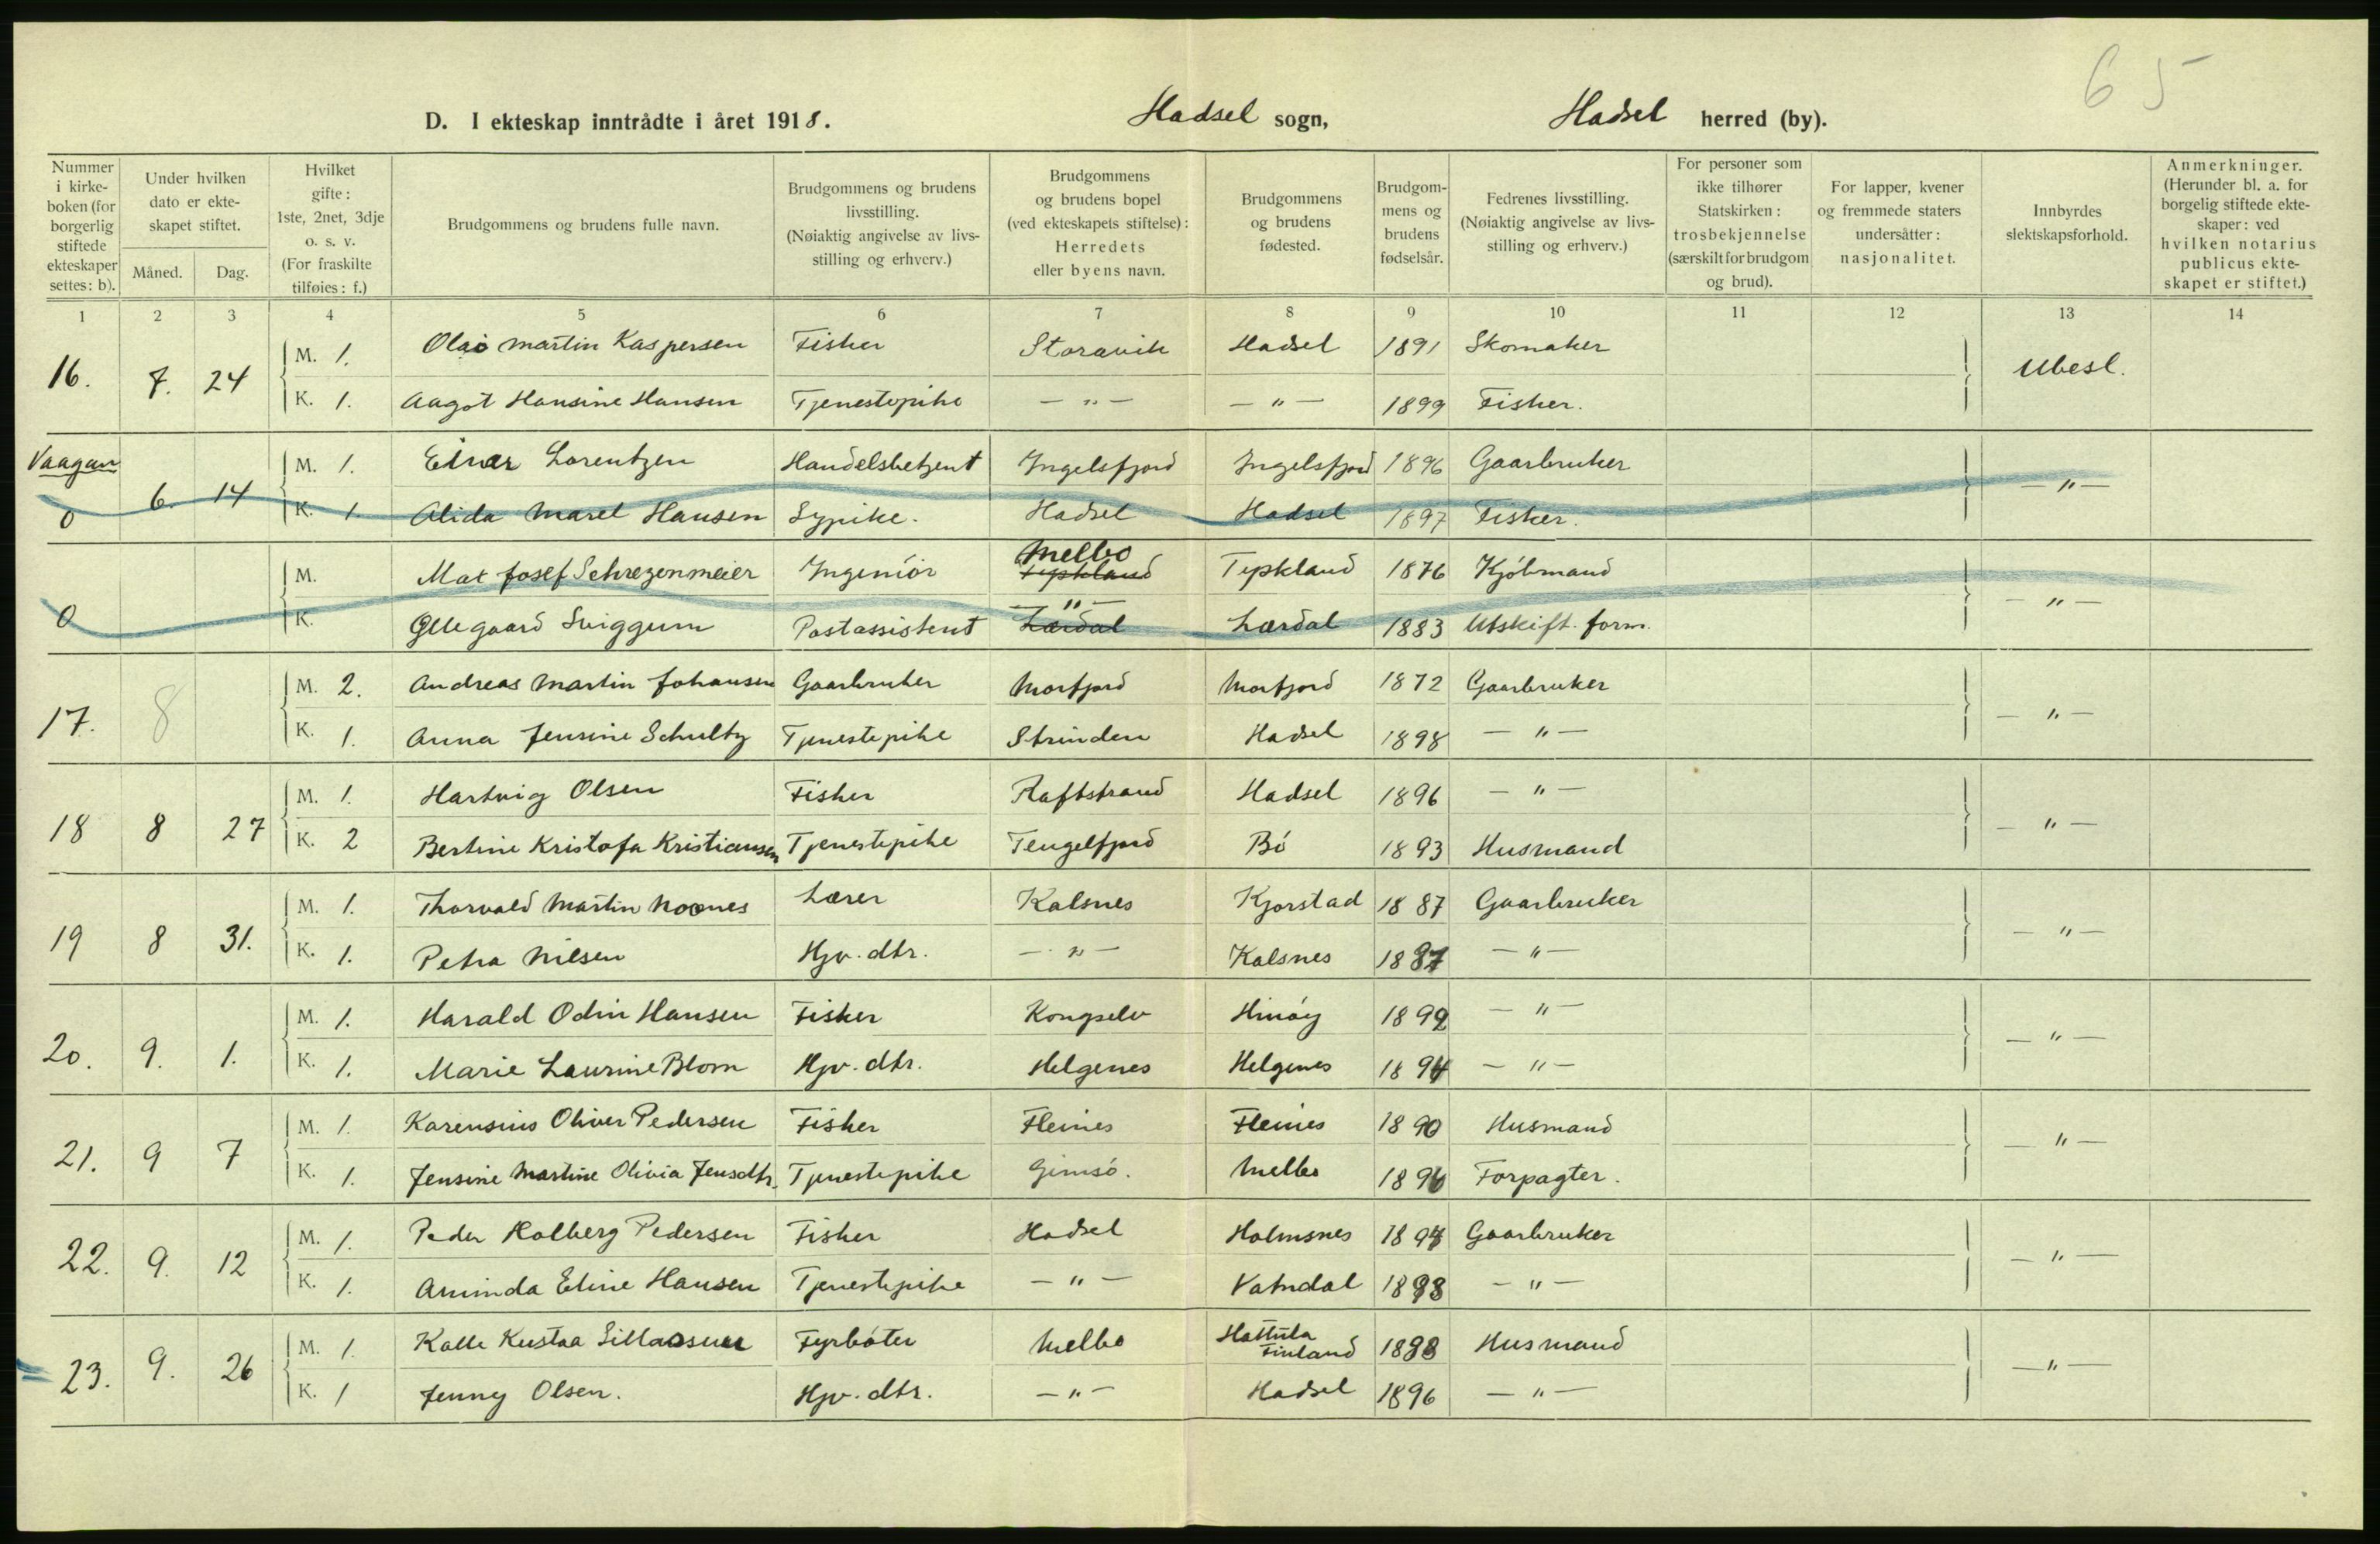 65
D. I ekteskap inntrådte i året 1918. Hadsel sogn, Hadsel herred (by).
Nummer i kirkeboken (for borgerlig stiftede ekteskaper settes: b).
Under hvilken dato er ekteskapet stiftet.
Måned. Dag.
Hvilket gifte: 1ste, 2net, 3dje o. s. v. (For fraskilte tilføies: f.)
Brudgommens og brudens fulle navn.
Brudgommens og brudens livsstilling. (Nøiaktig angivelse av livsstilling og erhverv.)
Brudgommens og brudens bopel (ved ekteskapets stiftelse): Herredets eller byens navn.
Brudgommens og brudens fødested.
Brudgommens og brudens fødselsår.
Fedrenes livsstilling. (Nøiaktig angivelse av livsstilling og erhverv.)
For personer som ikke tilhører Statskirken: trosbekjennelse (særskilt for brudgom og brud).
For lapper, kvener og fremmede staters undersåtter: nasjonalitet.
Innbyrdes slektskapsforhold.
Anmerkninger. (Herunder bl. a. for borgelig stiftede ekteskaper: ved hvilken notarius publicus ekteskapet er stiftet.)
1 2 3 4 5 6 7 8 9 10 11 12 13 14
16. 7. 24 M. 1. Martin Kaspersen Fisker Storavik Hadsel 1891 Skomaker Ubesl.
K. 1. Aagot Hansine Hansen Tjenestepike — " — — " — 1899 Fisker.
Vaagan
0 6. 14 M. 1. Einar Lorentzen Handelsbetjent Ingelsfjord Ingelsfjord 1896 Gaarbruker — " —
K. 1. Alida Marel Hansen Sypike. Hadsel Hadsel 1897 Fisker.
0 M. Max Josef Schregenmeier Ingeniør Melbo Typkland Typkland 1876 Kjøbmand — " —
K. Gllegaard Sviggum Postassistent — " — Lærdal Lærdal 1883 Utskift. form.
17. 8 M. 2. Andreas Martin Johansen Gaarbruker Morfjord Morfjord 1872 Gaarbruker — " —
K. 1. Anna Jensine Schultz Tjenestepike Strinden Hadsel 1898 — " —
18 8 27 M. 1. Hartvig Olsen Fisker Raftstrand Hadsel 1896 — " — — " —
K. 2 Bertine Kristofa Kristiansen Tjenestepike Tengelfjord Bö 1893 Husmand
19 8 31. M. 1. Thorvald Martin Moones Lærer Kalsnes Kjorstad 1887 Gaarbruker — " —
K. 1. Petra Nilsen Hjv. dtr. — " — Kalsnes 1887 — " —
20. 9. 1. M. 1. Harald Odin Hansen Fisker Kongselv Hinöy 1892 — " — — " —
K. 1. Marie Laurine Blom Hjv. dtr. Helgenes Helgenes 1894 — " —
21. 9 7 M. 1. Karensius Oliver Pedersen Fisker Fleines Fleines 1890 Husmand — " —
K. 1. Jensine Martine Olivia Jensdtr. Tjenestepike Gimsö. Melbo 1896 Forpagter.
22. 9. 12 M. 1. Peder Holberg Pedersen Fisker Hadsel Holmsnes 1894 Gaarbruker — " —
K. 1. Aminda Eline Hansen Tjenestepike — " — Vatndal 1898 — " —
23. 9. 26 M. 1. Kalle Kustaa Fyrböter Melbo Hattula Finland 1898 Husmand — " —
K. 1 Jenny Olsen. Hjv. dtr. — " — Hadsel 1896 — " —